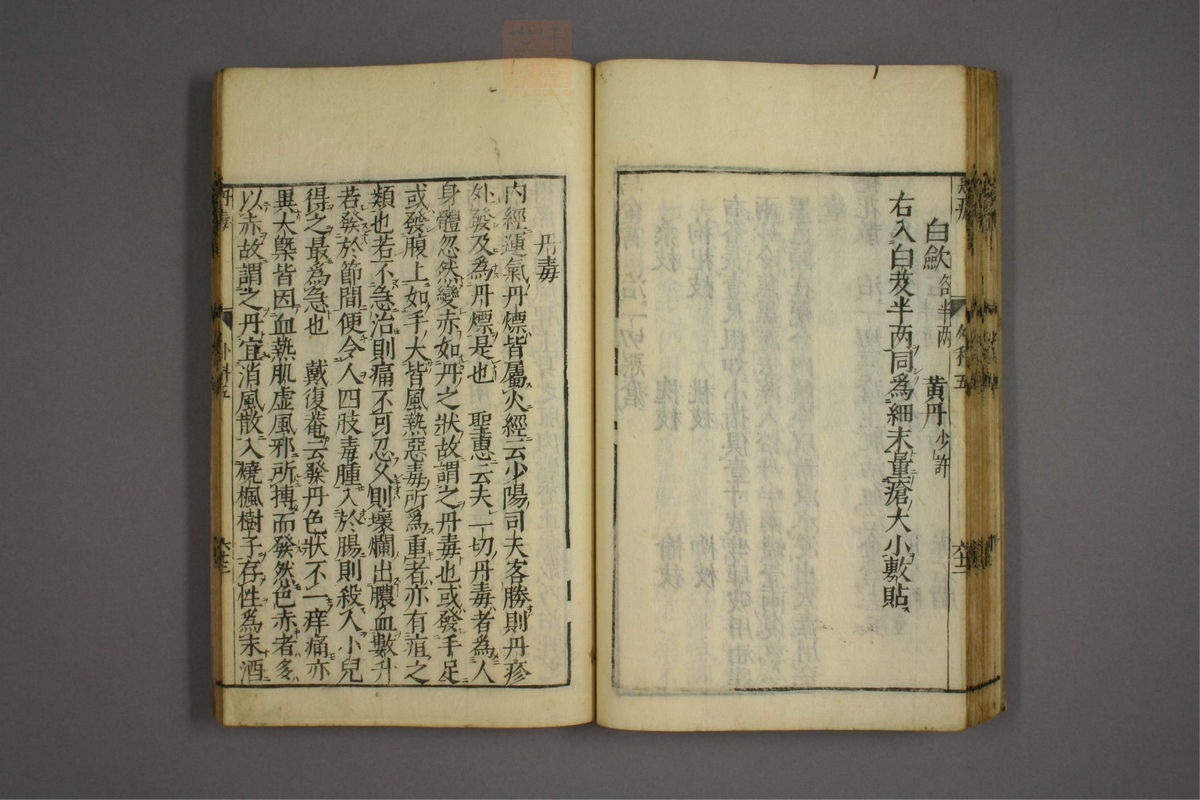 白歛各半两 黄丹少許
右入白芨半两同爲細末量瘡大小敷貼
外科五
六十二
丹毒
内經運氣丹熛皆屬火經云少陽司天客勝則丹疹
外發及爲丹熛是也 聖惠云夫一切丹毒者爲人
身體忽然變赤如丹之狀故謂之丹毒也或發手足
或發腹上如手大皆風熱惡毒所爲重者亦有疽之
類也若不急治則痛不可忍又則壞爛出膿血數升
若發於節間便令人四肢毒腫入於腸則殺人小兒
得之最爲急也 戴復菴云發丹色狀不一痒痛亦
異大槩皆因血熱肌虚風邪所搏而發然色赤者多
以赤故謂之丹宜消風散入燒楓樹子存性爲末酒
丹毒
六十三